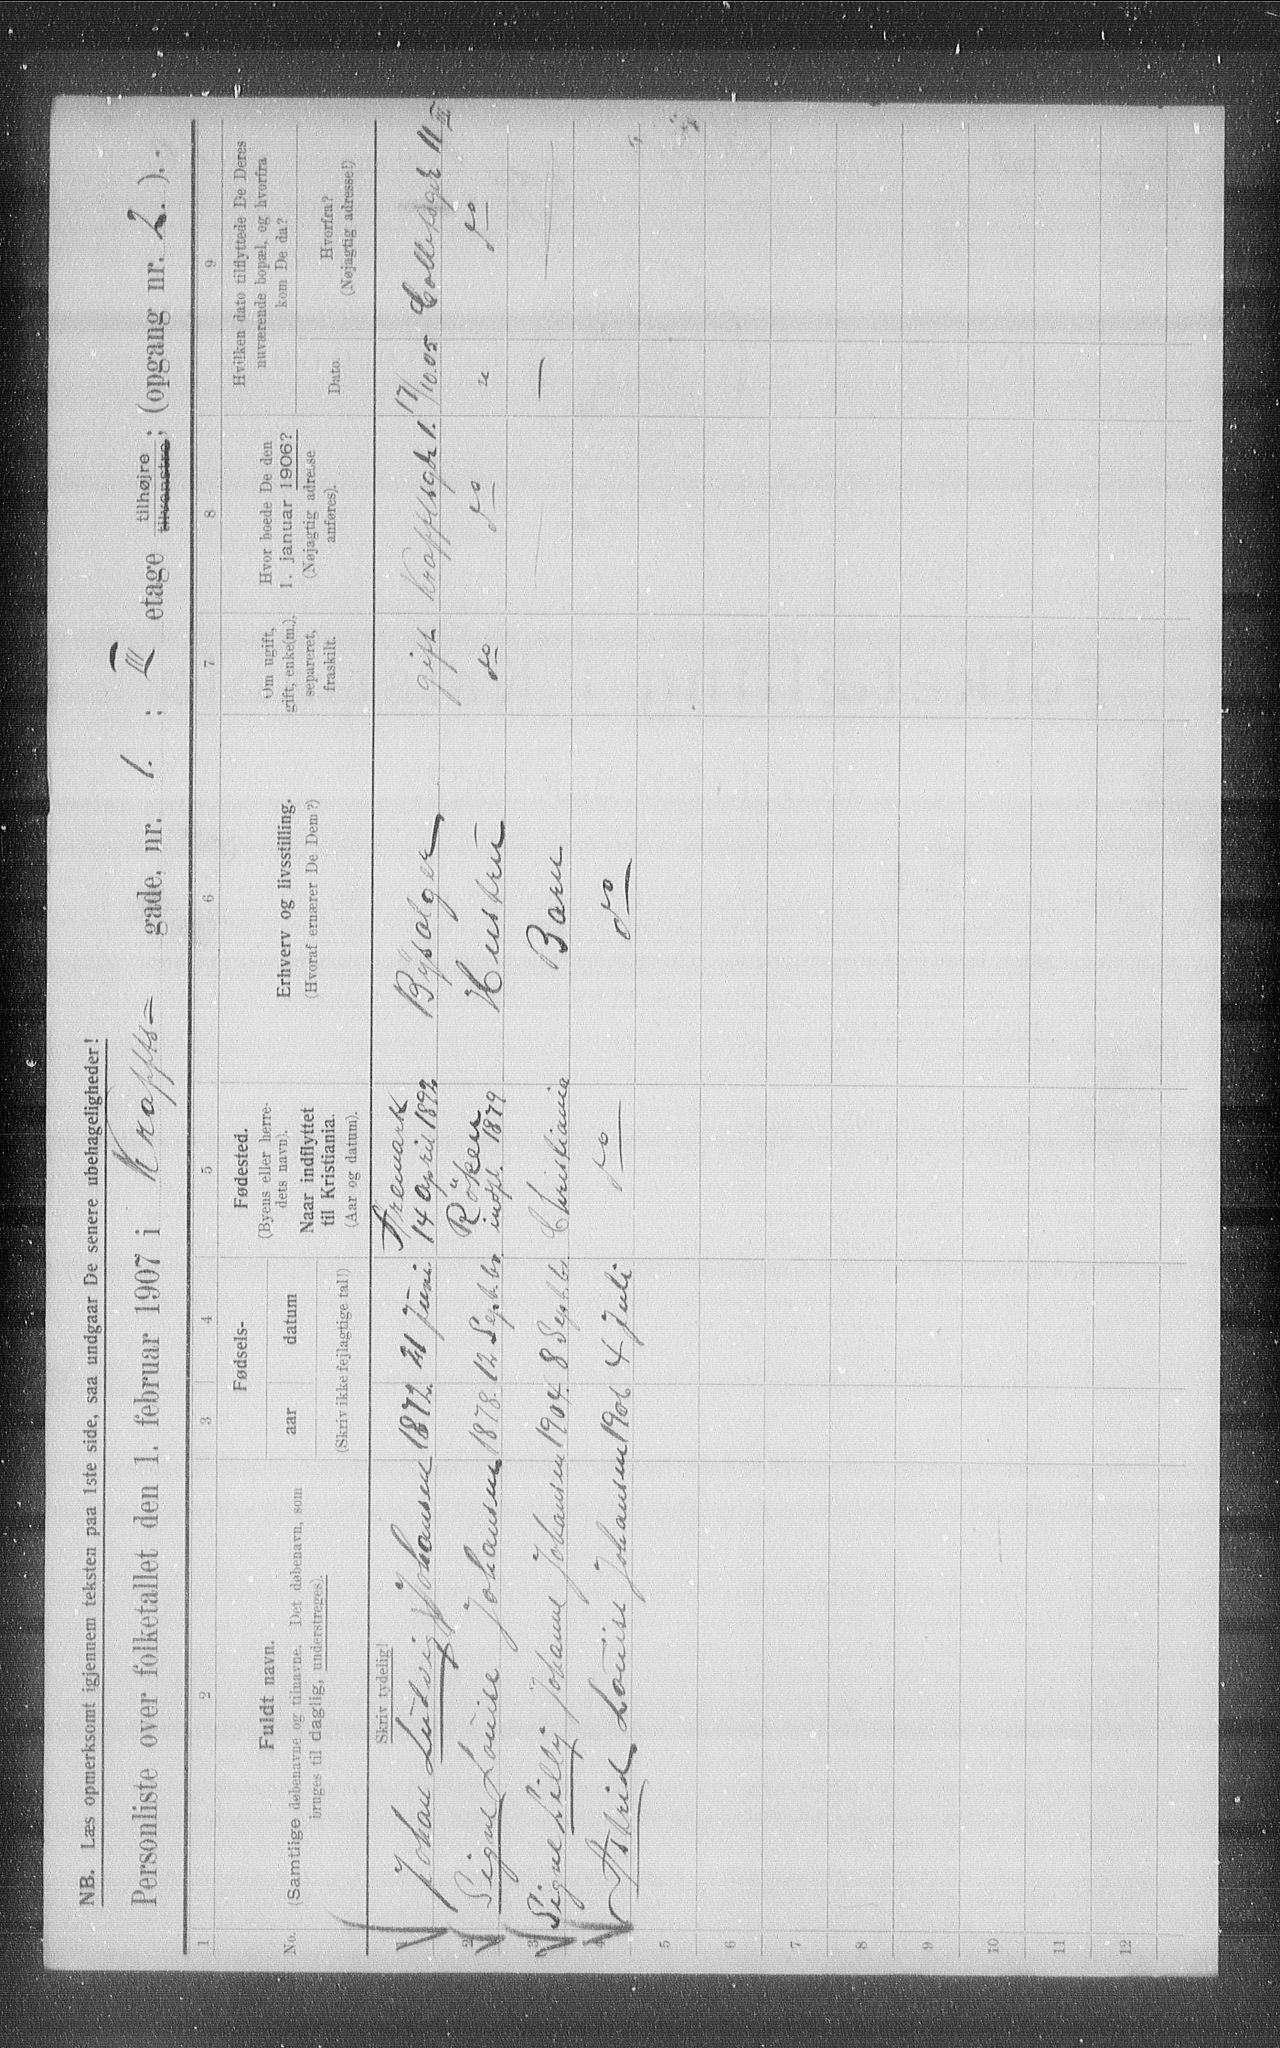 NB. Læs opmerksomt igjennem teksten paa 1ste side, saa undgaar De senere ubehageligheder!
Personliste over folketallet den 1. februar 1907 i Kraffts- gade, nr. 1. ; III etage tilhøjre ~~tilvenstre~~; (opgang nr. 2.).
1 2 3 4 5 6 7 8 9
No.
Fuldt navn.
(Samtlige døbenavne og tilnavne. Det døbenavn, som
bruges til daglig, understreges).
Fødsels-
aar datum
(Skriv ikke fejlagtige tal!)
Fødested.
(Byens eller herre-
dets navn).
Naar indflyttet
til Kristiania.
(Aar og datum).
Erhverv og livsstilling.
(Hvoraf ernærer De Dem?)
Om ugift,
gift, enke(m.),
separeret,
fraskilt.
Hvor boede De den
1. januar 1906?
(Nøjagtig adresse
anføres).
Hvilken dato tilflyttede De Deres
nuværende bopæl, og hvorfra
kom De da?
Dato.
Hvorfra?
(Nøjagtig adresse!)
Skriv tydelig!
Johan Ludvig Johansen 1872. 21 Juni Aremark 14 April 1892 Bysælger gift Krafftsgt 1. 17/10.05 Colletsgt 11 III
2 Signe Louise Johansen 1878. 12 Septbr. Röken indfl. 1879 Hustru do do " do
3 Signe Lilly Johanne Johansen 1904. 8 Septbr. Christiania Barn —
4 Astrid Louise Johansen 1906 4 Juli do do
5
6
7
8
9
10
11
12